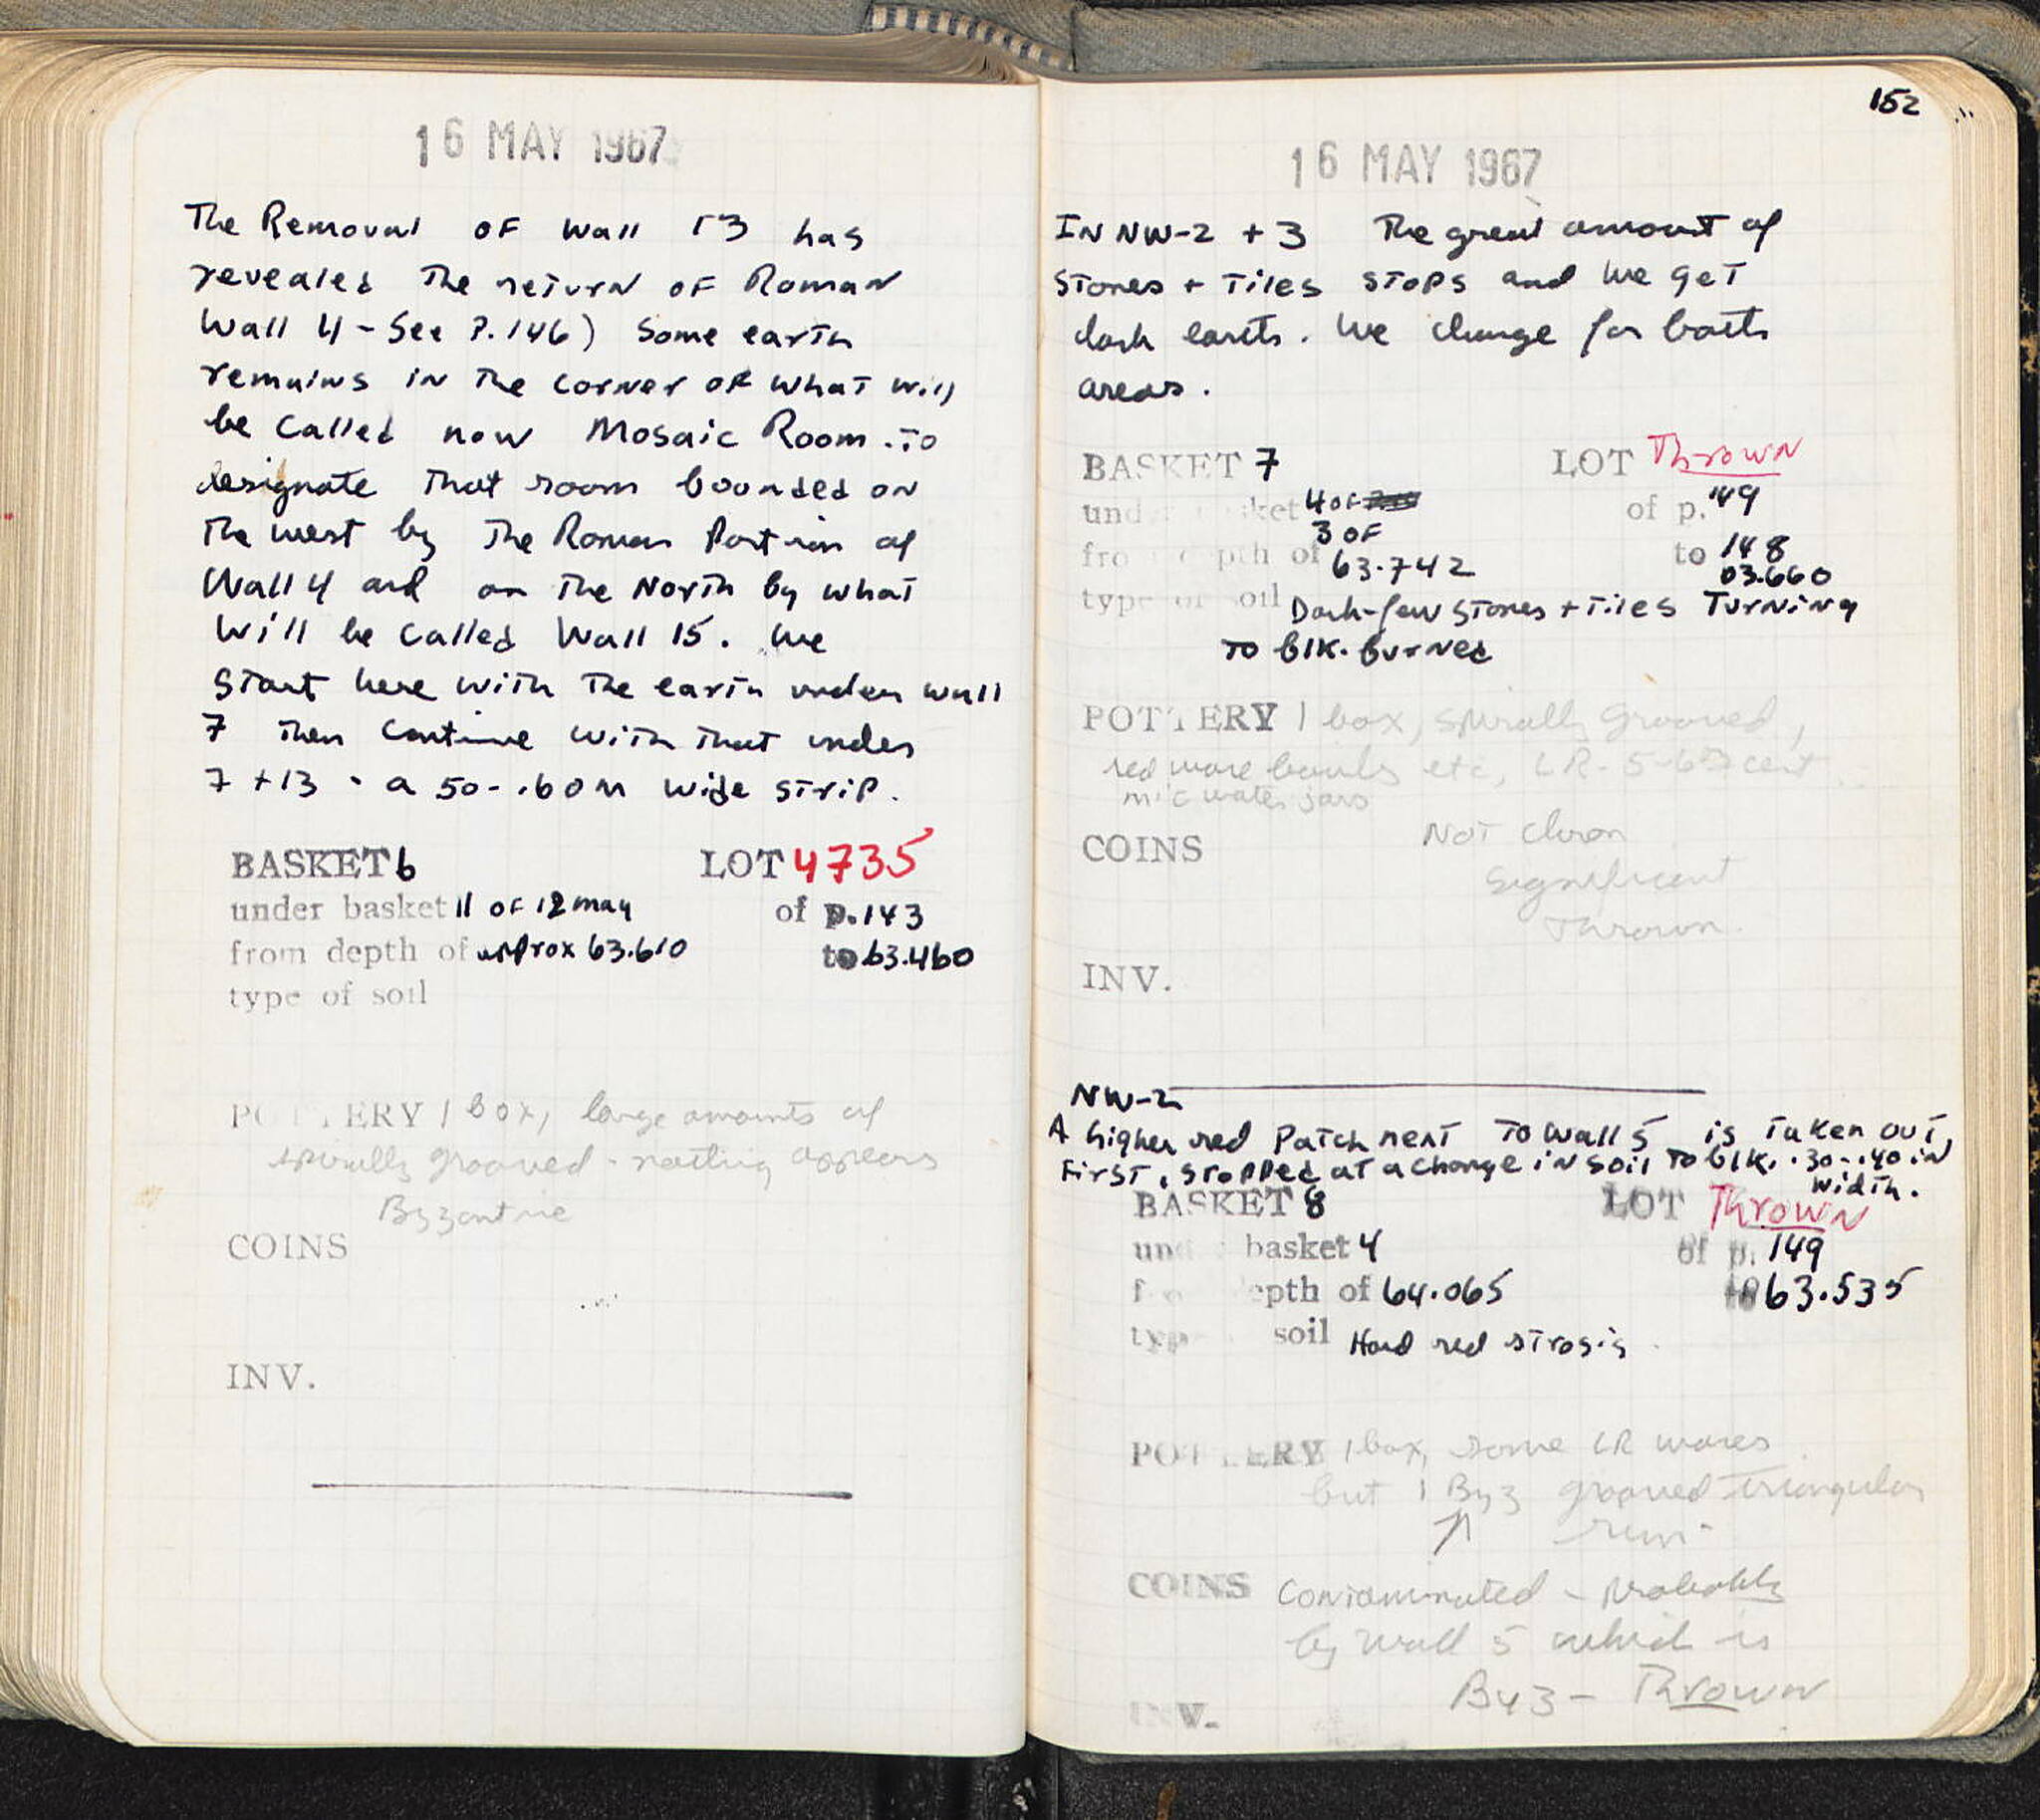 16 MAY 1967
The Removal of Wall 13 has
revealed The return of Roman
Wall 4 - See P. 146) Some earth
remains in The corner of what will
be called now Mosaic Room. To
designate That room bounded on
The west by The Roman Portion of
Wall 4 and on The North by what
Will be called Wall 15. We
Start here with The earth under wall
7 Then continue with that under
7 + 13 - a 50-.60m wide strip.
BASKET 6 LOT 4735
under basket 11 of 12 may of p. 143
from depth of approx 63.610 to 63.460
type of soil
POTTERY 1 box, large amounts of
spirally grooved - nothing appears
Byzantine
COINS
INV.
152
16 MAY 1967
In NW-2 + 3 The great amount of
Stones + Tiles stops and we get
dark earth. We change for both
areas.
BASKET 7 LOT Thrown
under basket 4 of of p. 149
3 of 148
from depth of 63.742 to 63.660
type of soil Dark-few stones + Tiles Turning
To blk. burned
POTTERY 1 box, spirally grooved,
red ware bowls etc, LR - 5-6th cent
mic water jars
COINS Not chron
significant
Thrown.
INV.
NW-2
A higher red Patch next To Wall 5 is Taken out,
First, stopped at a change in soil To blk. .30-.40 in
width.
BASKET 8 LOT Thrown
under basket 4 of p. 149
from depth of 64.065 to 63.535
type of soil Hard red strosis
POTTERY 1 box, some LR wares
but 1 Byz grooved triangular
rim -
COINS Contaminated - probably
by Wall 5 which is
Byz - Thrown
INV.